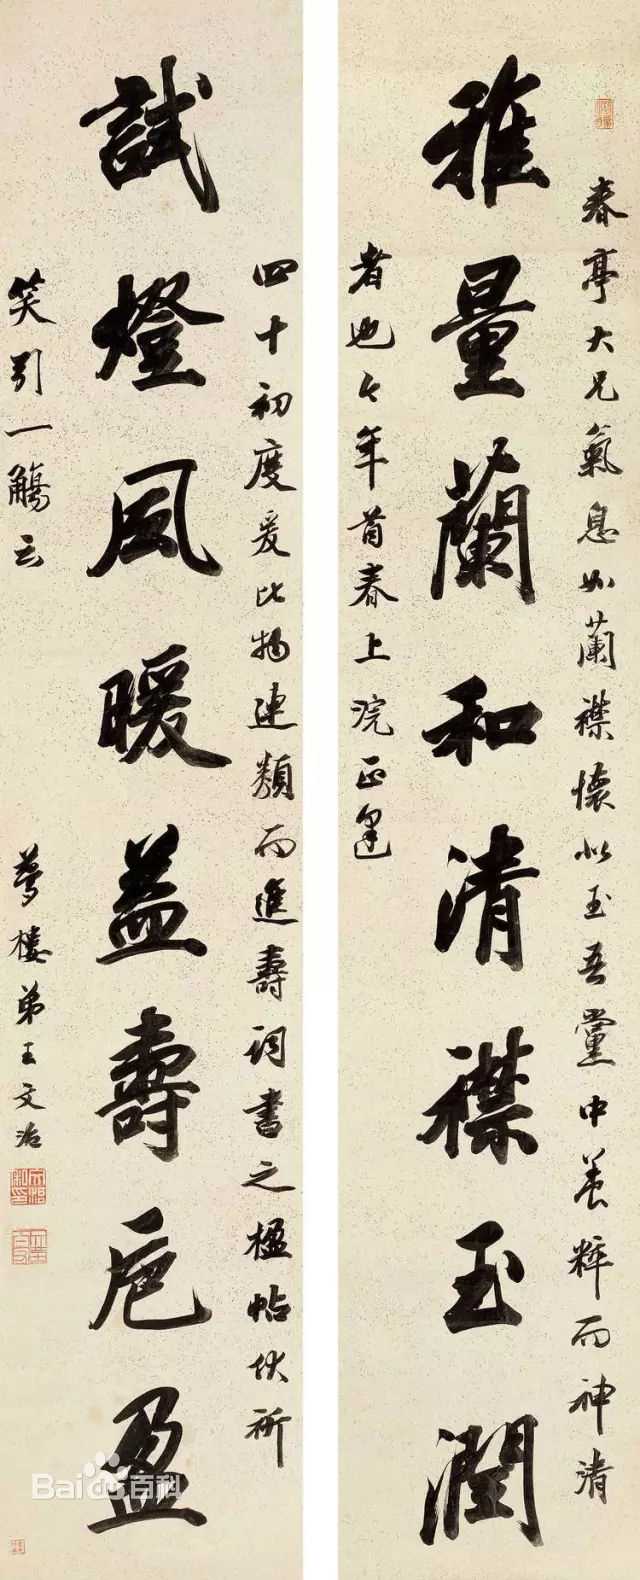 春亭大兄氣息如蘭襟懷似玉吾黨中養粹而神清
雅量蘭和清襟玉潤
者也今年首春上浣正逢
四十初度爰比物連類而進壽詞書之楹帖伏祈
試燈風暖益壽卮盈
笑引一觴云
夢樓弟王文治
Bai百科